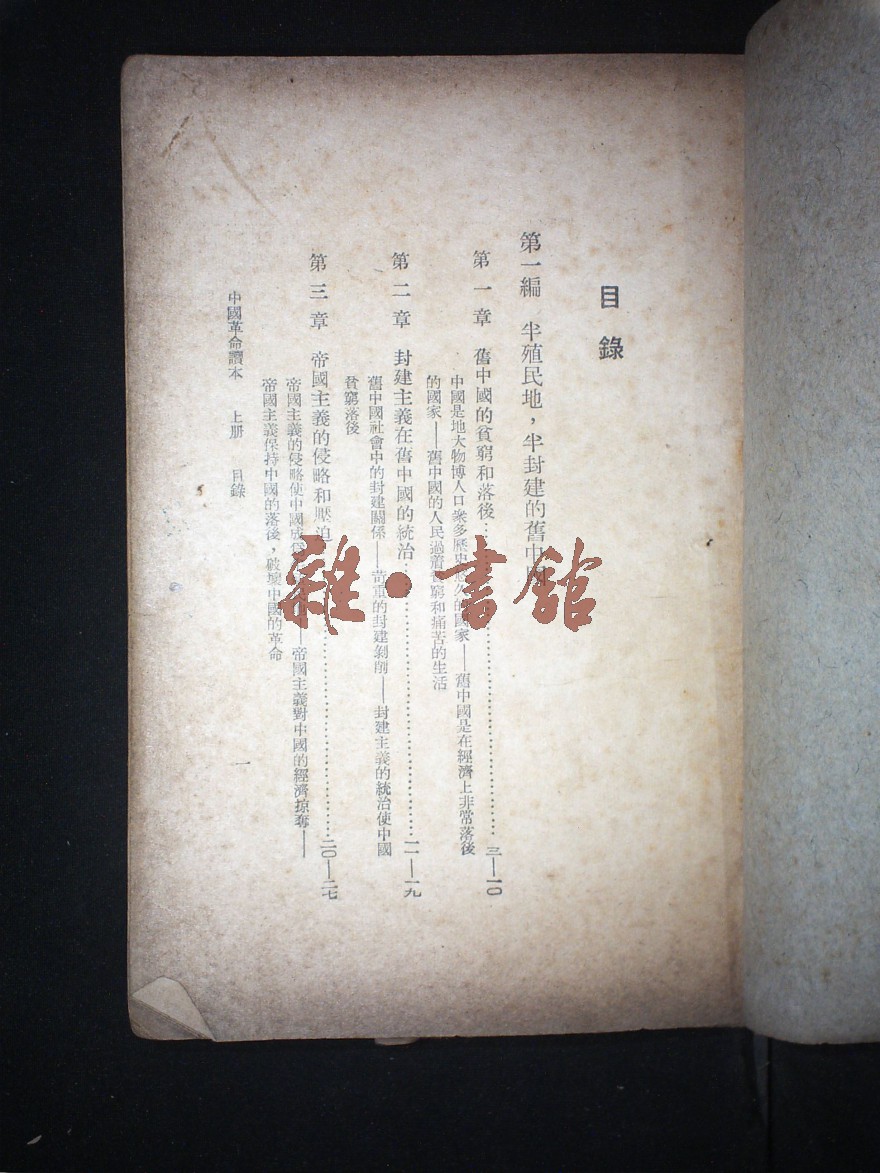 目錄
第一編 半殖民地，半封建的舊中國
第一章 舊中國的貧窮和落後……三—一〇
中國是地大物博人口衆多歷史悠久的國家——舊中國是在經濟上非常落後
的國家——舊中國的人民過着貧窮和痛苦的生活
第二章 封建主義在舊中國的統治……一一—一九
舊中國社會中的封建關係——苛重的封建剝削——封建主義的統治使中國
貧窮落後
第三章 帝國主義的侵略和壓迫……二〇—二七
帝國主義的侵略使中國成——帝國主義對中國的經濟掠奪——
帝國主義保持中國的落後，破壞中國的革命
中國革命讀本 上册 目錄
一
雜·書館